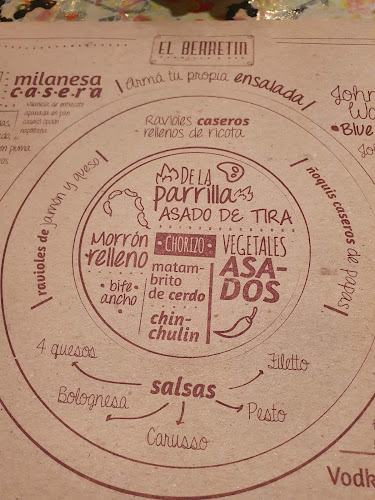 EL BERRETIN
milanesa
casera
napolitana
Armá tu propia ensalada
John
Wa
• Blue
Jo
Ravioles caseros
rellenos de ricota
ravioles de jamón y queso
ñoquis caseros de papas
DE LA
parrilla
ASADO DE TIRA
Morrón
relleno
• bife •
ancho
CHORIZO
matam-
brito
de cerdo
chin-
chulin
VEGETALES
ASA-
DOS
salsas
4 quesos
Bolognesa
Carusso
Pesto
Filetto
Vodk